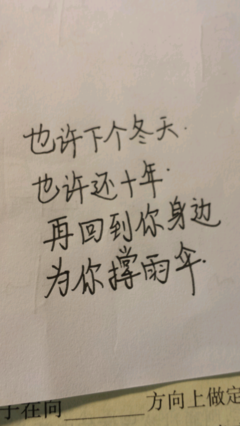 也许下个冬天.
也许还十年.
再回到你身边
为你撑雨伞.
于在问______方向上做定